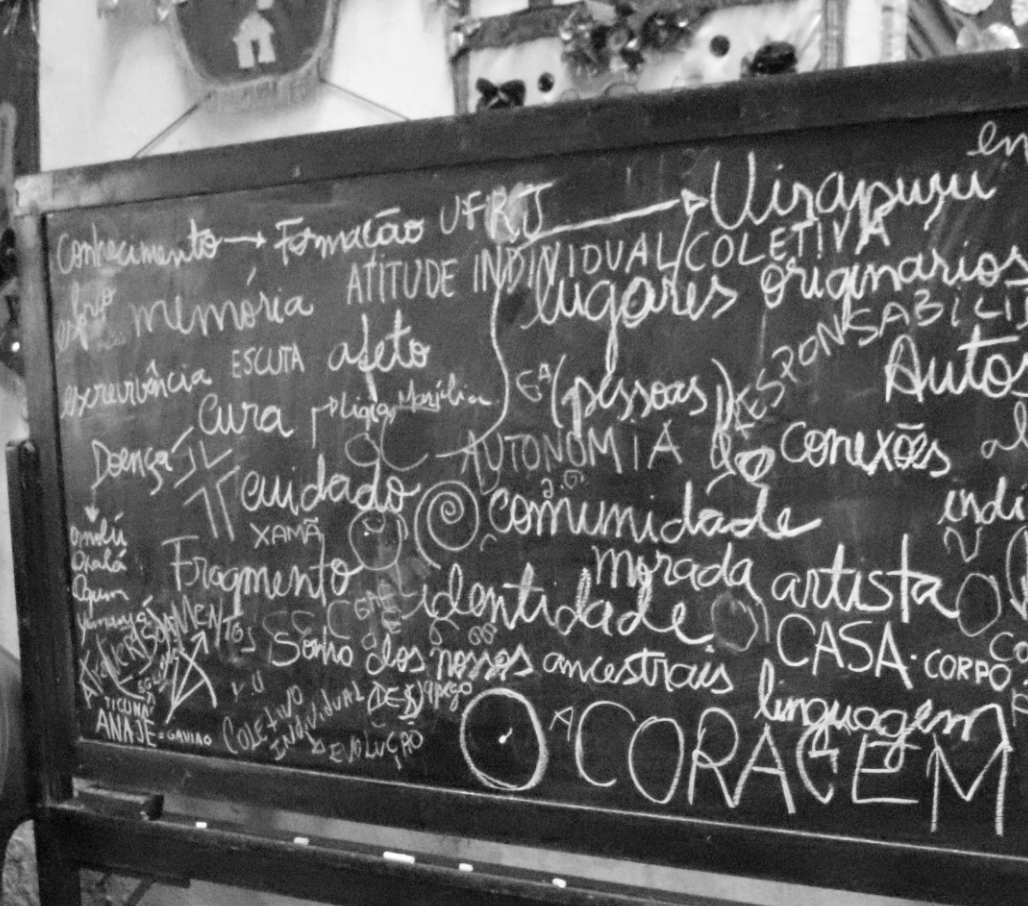 en
conhecimento → Formação UFRJ → Uirapuru
ATITUDE INDINIDUAL/COLETIVA
memória
lugares originários
ESCUTA afeto
RESPONSABILI
exrevivência
Autos
cura → Ligia Marília
(pessoas)
Doença
AUTONOMIA
conexões
cuidado
comunidade
indi
XAMÃ
omolú
Oxalá
Ogum
Yemanjá
Fragmento
morada
artista
identidade
CASA · CORPO
AtRAVERSAMENtOS
Sonho dos nossos ancestrais
linguagem
TICUNA
ANAJÉ = GAVIÃO
COLETIVO
INDIVIDUAL
EVOLUÇÃO
A CORAGEM